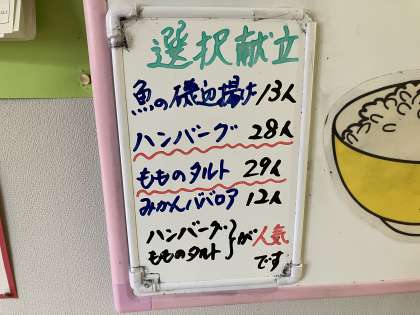 選択献立
魚の磯辺揚げ 13人
ハンバーグ 28人
もものタルト 29人
みかんババロア 12人
ハンバーグ
もものタルト } が人気
です